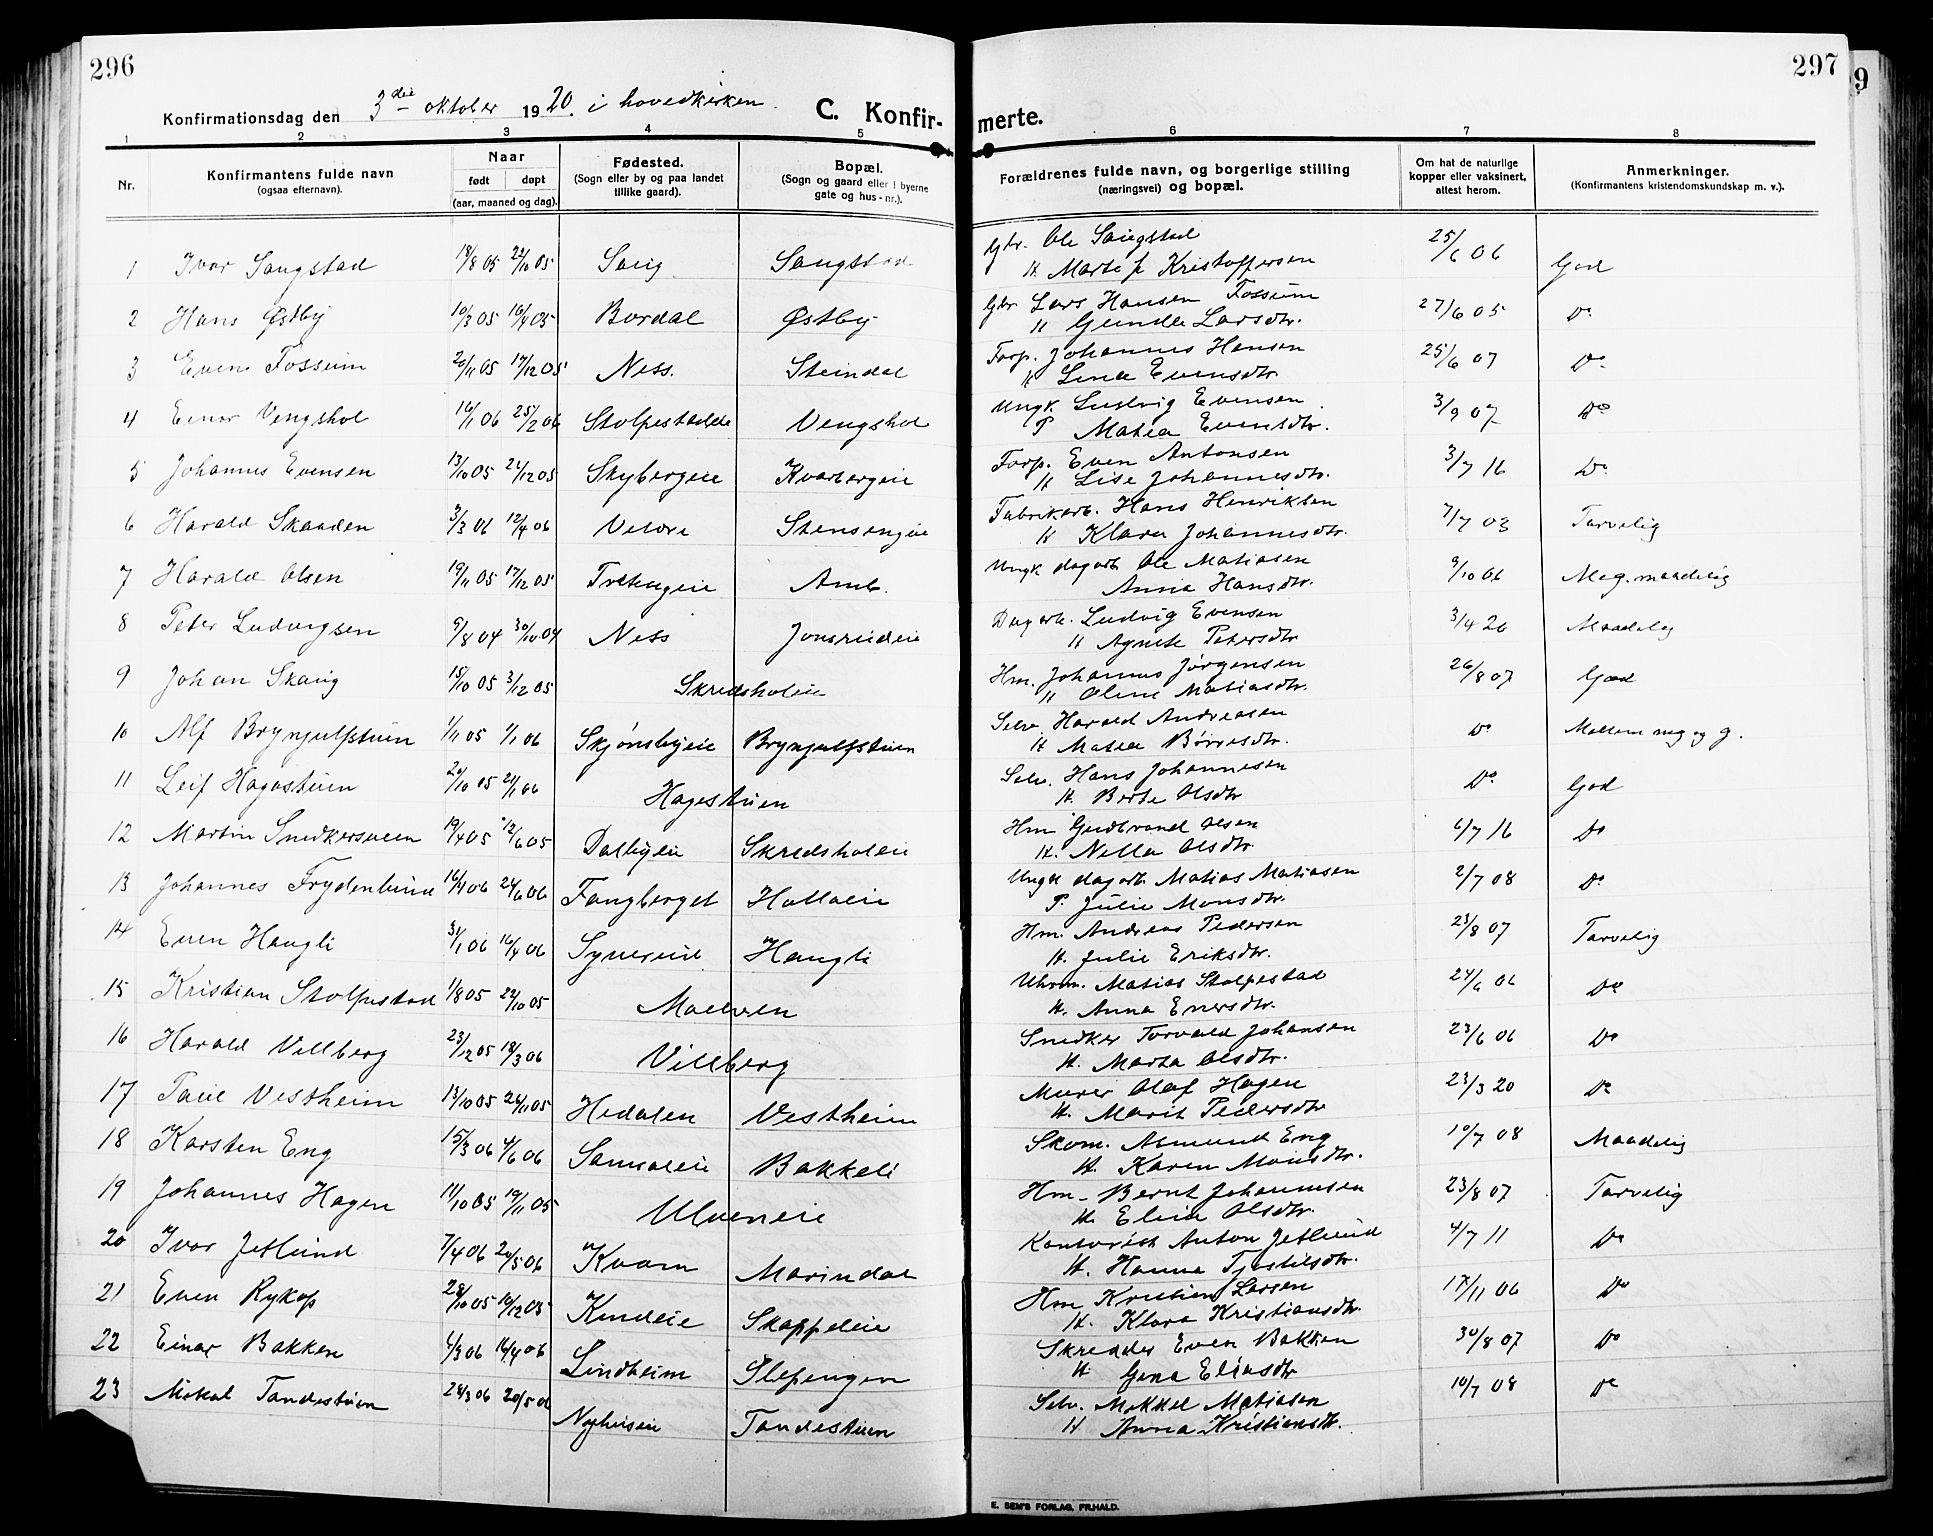 296
297
9
Konfirmationsdag den 3die oktober 1920. i hovedkirken.
C. Konfir-
merte.
1 2 3 4 5 6 7 8
Nr.
Konfirmantens fulde navn
(ogsaa efternavn).
Naar
født døpt
(aar, maaned og dag).
Fødested.
(Sogn eller by og paa landet
tillike gaard).
Bopæl.
(Sogn og gaard eller i byerne
gate og hus-nr.).
Forældrenes fulde navn, og borgerlige stilling
(næringsvei) og bopæl.
Om hat de naturlige
kopper eller vaksinert,
attest herom.
Anmerkninger.
(Konfirmantens kristendomskundskap m. v.).
1 Ivar Saugstad 18/8 05 22/10 05 Saug Saugstad Gbr. Ole Saugstad 25/6 06 God
H. Marte f. Kristoffersen
2 Hans Østby 10/3 05 16/4 05 Bordal Østby Gbr Lars Hansen Fossum 27/6 05 Do
H Gunda Larsdtr.
3 Even Fossum 20/11 05 17/12 05 Ness. Steindal Torp. Johannes Hansen 25/6 07 Do
H Lina Evensdtr
4 Einar Vengshol 16/1 06 25/2 06 Stolpestadeie Vengshol Ungk. Ludvig Evensen 3/9 07 Do
P Matea Evensdtr.
5 Johannes Evensen 13/10 05 26/12 05 Skybergeie Kvarbergeie Torp. Even Antonsen 3/7 16 Do
H Lise Johannesdtr.
6 Harald Skaaden 3/3 06 12/4 06 Veldre Stensengeie Fabrikarb. Hans Henriksen 7/7 03 Tarvelig
H Klara Johannesdtr.
7 Harald Olsen 19/11 05 17/12 05 Amb. Ungk dagarb Ole Matiasen 9/10 06 Meg. maadelig
Anna Hansdtr.
8 Peter Ludvigsen 9/8 04 30/10 04 Ness Jonsrudeie Dagarb. Ludvig Evensen 3/4 20 Maadelig
H Agnete Petersdtr
9 Johan Skaug 15/10 05 3/12 05 Skredsholeie Hm. Johannes Jørgensen 26/8 07 God
H Oline Matiasdtr.
10 Alf Bryngulfstuen 1/11 05 1/1 06 Skjønsbyeie Bryngulfstuen Selv. Harald Andreasen Do Mellem mg og g.
H Matea Børresdtr.
11 Leif Hagestuen 20/10 05 21/1 06 Hagestuen Selv. Hans Johannesen Do God
H. Berte Olsdtr
12 Martin Snedkersveen 19/4 05 12/6 05 Dalbyeie Skredsholeie Hm Gudbrand Olsen 6/7 16 Do
H. Nella Olsdtr.
13 Johannes Frydenlund 16/4 06 24/6 06 Fangberget Holloeie Ungk dagarb Matias Matiasen 2/7 08 Do
P. Julie Monsdtr.
14 Even Haugli 31/1 06 16/4 06 Synerud Haugli Hm. Andreas Pedersen 23/8 07 Tarvelig
H. Julie Eriksdtr.
15 Kristian Stolpestad 1/8 05 22/10 05 Moelven Uhrm. Matias Stolpestad 24/6 06 Do
H. Anna Enersdtr.
16 Harald Villberg 23/12 05 18/3 06 Villberg Snedker Torvald Johansen 23/6 06 Do
H. Marta Olsdtr.
17 Paul Vestheim 13/10 05 26/11 05 Hedalen Vestheim Murer Olaf Hagen 23/3 20 Do
H. Marit Pedersdtr
18 Karsten Eng 15/3 06 4/6 06 Bakkeli Skom. Asmund Eng 10/7 08 Maadelig
H. Karen Monsdtr.
19 Johannes Hagen 11/10 05 19/11 05 Ulveneie Hm- Bernt Johannesen 23/8 07 Tarvelig
H. Elina Olsdtr.
20 Ivar Jetlund 7/4 06 20/5 06 Kvam Marindal Kontorist Anton Jetlund 4/7 11 Do
H. Hanna Tjostilsdtr.
21 Even Rykop 28/10 05 10/12 05 Kindeie Skappeleie Hm Kristian Larsen 17/11 06 Do
H. Klara Kristiansdtr.
22 Einar Bakken 4/3 06 16/4 06 Lindheim Slepengen Skredder Even Bakken 30/8 07 Do
H Gina Eliasdtr
23 Mikal Tandestuen 28/3 06 20/5 06 Nyhuseie Tandestuen Selv. Mikkel Matiasen 10/7 08 Do
H Anna Kristiansdtr.
E. SEM'S FORLAG, FR.HALD.